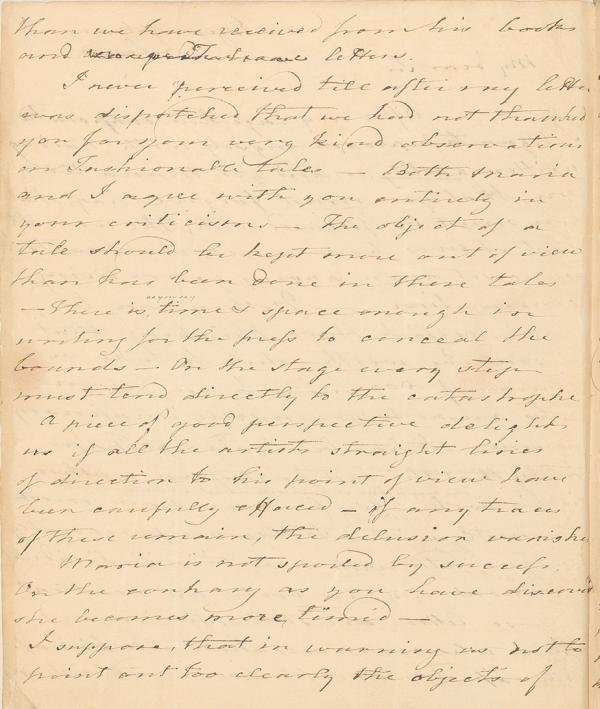 than we have received from his books
and letters.
I never perceived till after my letter
was dispatched that we had not thanked
you for your very kind observations
on Fashionable tales — Both Maria
and I agree with you entirely in
your criticisms — The object of a
tale should be kept more out of view
than has been done in these tales
— There is, as you say, time & space enough in
writing for the press to conceal the
bounds — On the stage every step
must tend directly to the catastrophe
A piece of good perspective delights
us if all the artists straight lines
of direction to his point of view have
been carefully effaced — if any traces
of these remain, the delusion vanishes
Maria is not spoiled by success.
On the contrary as you have discovered
she becomes more timid —
I suppose, that in warning us not to
point out too clearly the objects of